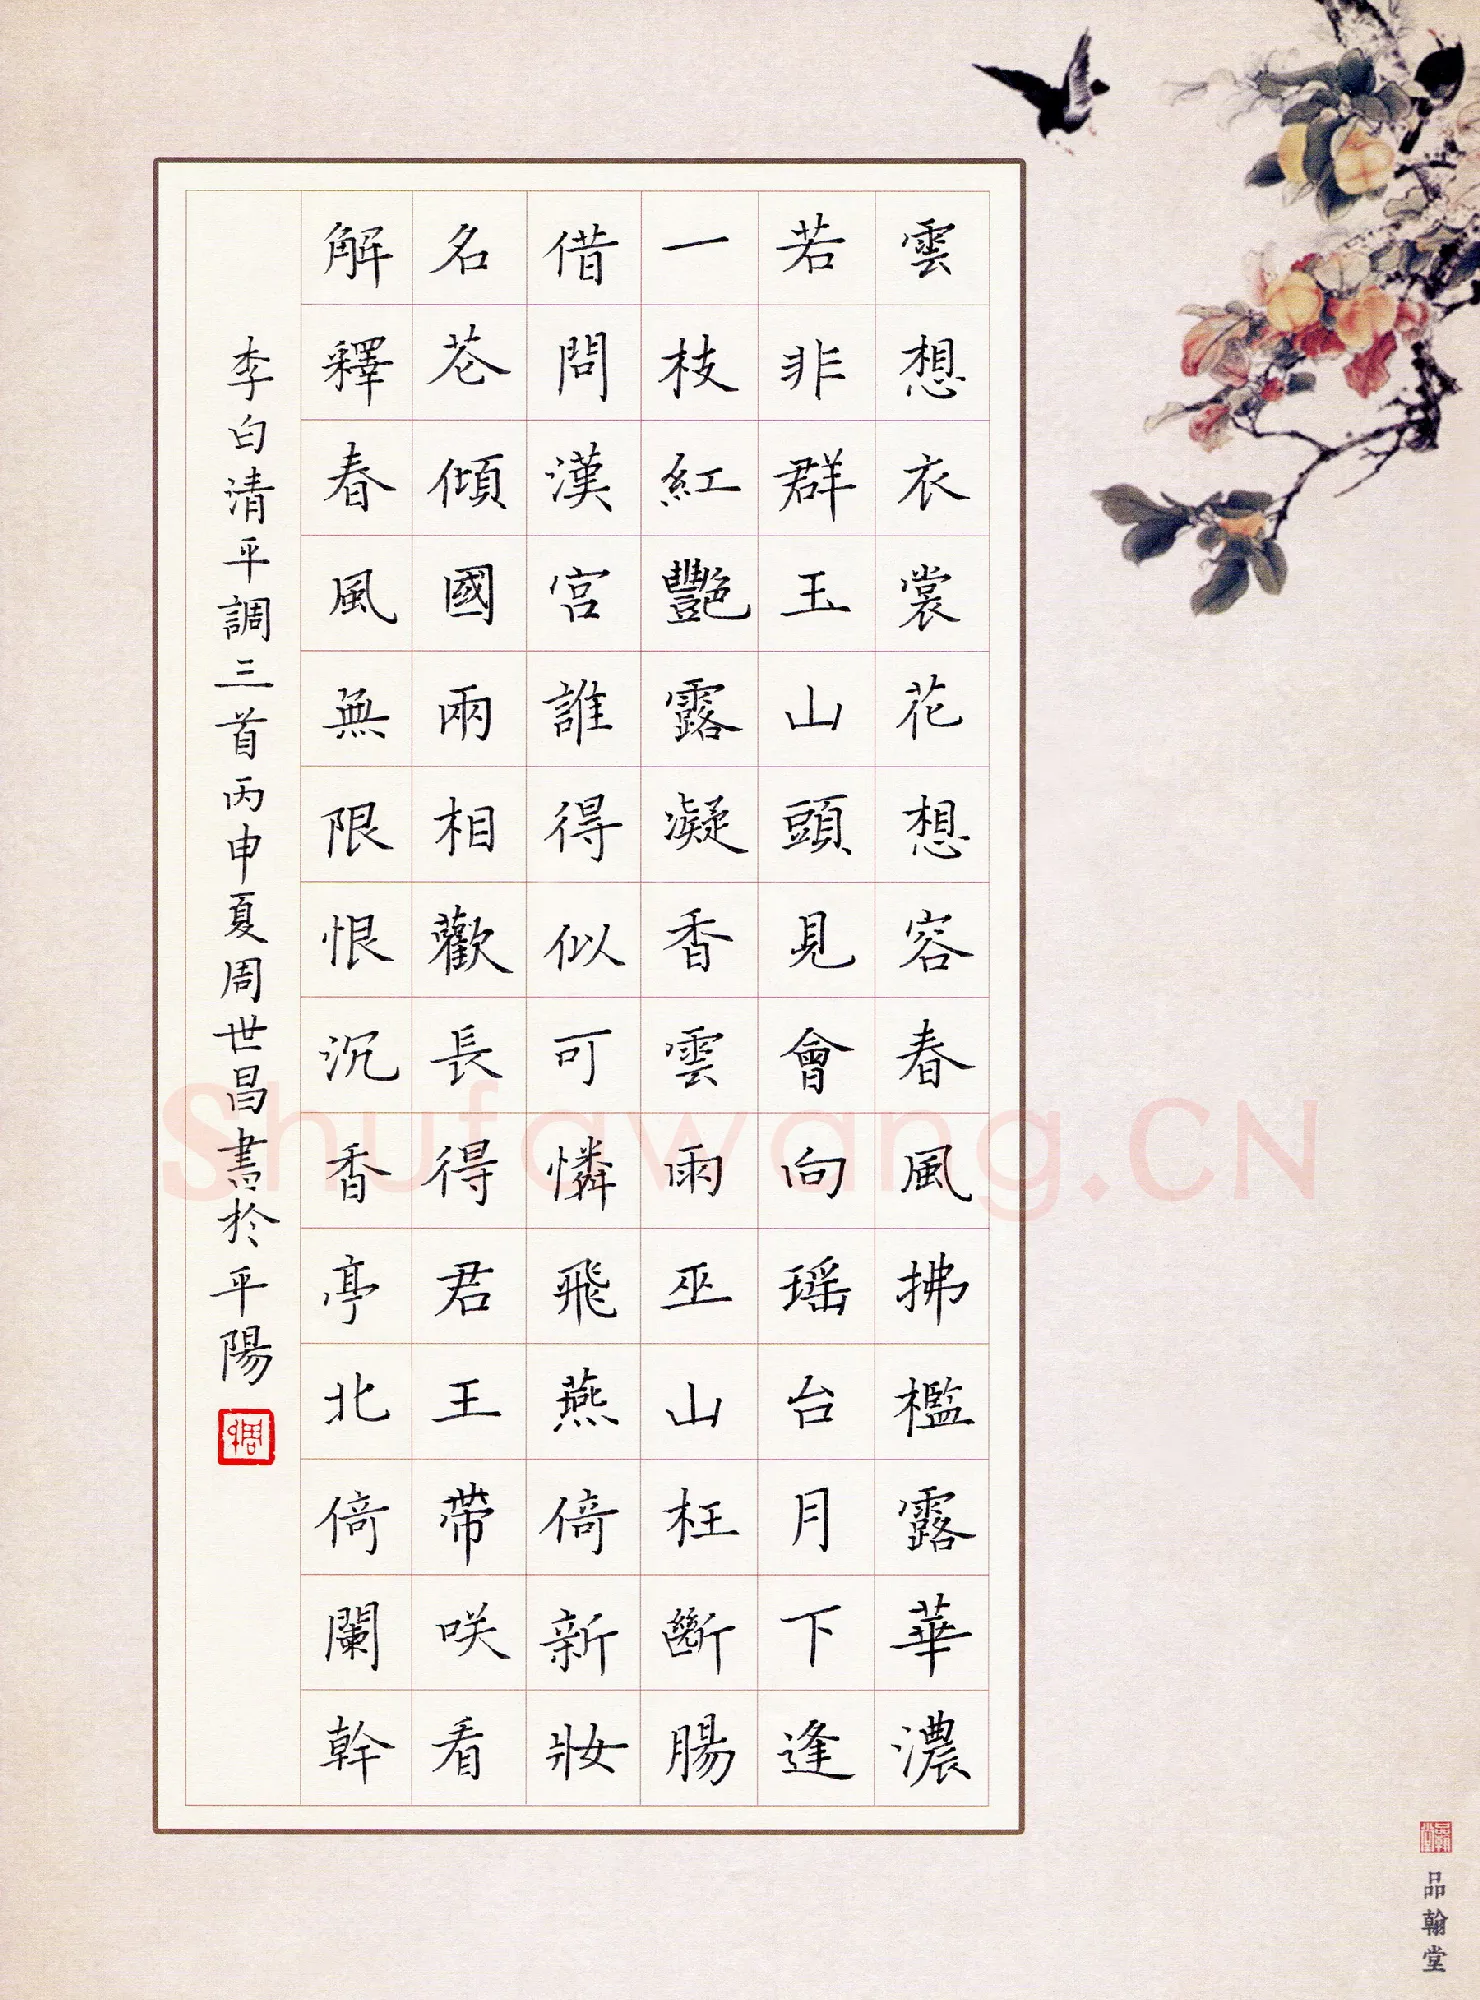 雲想衣裳花想容春風拂檻露華濃
若非群玉山頭見會向瑶台月下逢
一枝紅艷露凝香雲雨巫山枉斷腸
借問漢宮誰得似可憐飛燕倚新妝
名花傾國兩相歡長得君王帶咲看
解釋春風無限恨沉香亭北倚闌幹
李白清平調三首丙申夏周世昌書於平陽
Shufawang.CN
品翰堂